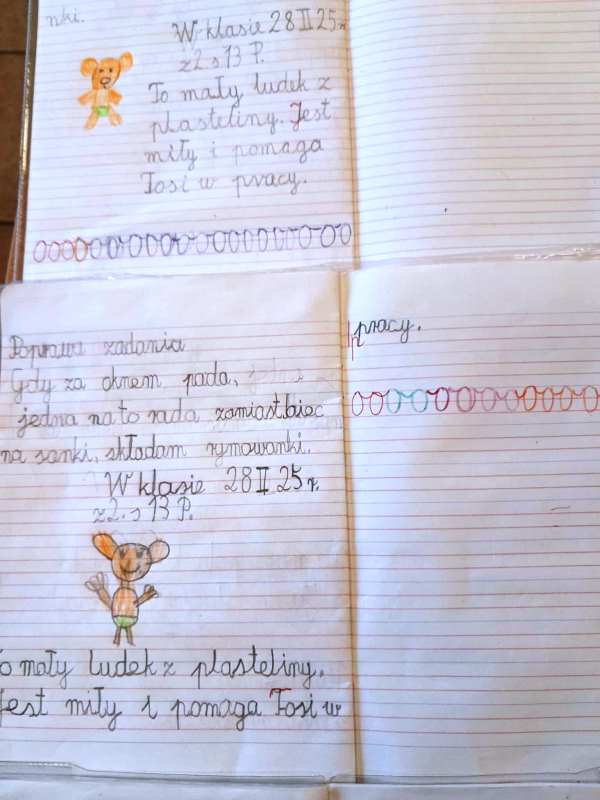 nki.
W klasie 28 II 25 r.
z 2. s 13 P.
To mały ludek z
plasteliny. Jest
miły i pomaga
Tosi w pracy.
Poprawa zadania
Gdy za oknem pada,
jedna na to rada zamiast biec
na sanki, składam rymowanki.
W klasie 28 II 25 r.
z 2. s 13 P.
To mały ludek z plasteliny.
Jest miły i pomaga Tosi w
pracy.